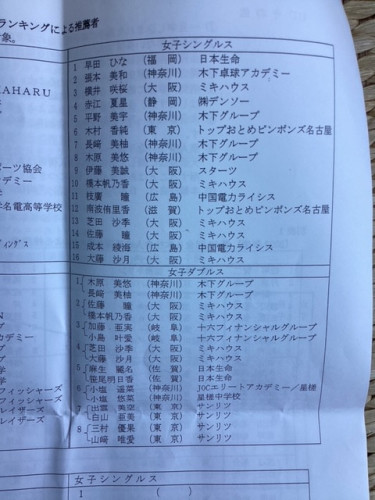 ランキングによる推薦者
象。
AHARU
ポーツ協会
カデミー
学名電高等学校
ィングス
カデミー
フィッシャーズ
フィッシャーズ
レイザーズ
レイザーズ
女子シングルス
1 早田 ひな (福 岡) 日本生命
2 張本 美和 (神奈川) 木下卓球アカデミー
3 横井 咲桜 (大 阪) ミキハウス
4 赤江 夏星 (静 岡) ㈱デンソー
5 平野 美宇 (神奈川) 木下グループ
6 木村 香純 (東 京) トップおとめピンポンズ名古屋
7 長﨑 美柚 (神奈川) 木下グループ
8 木原 美悠 (神奈川) 木下グループ
9 伊藤 美誠 (大 阪) スターツ
10 橋本帆乃香 (大 阪) ミキハウス
11 枝廣 瞳 (広 島) 中国電力ライシス
12 南波侑里香 (滋 賀) トップおとめピンポンズ名古屋
13 芝田 沙季 (大 阪) ミキハウス
14 佐藤 瞳 (大 阪) ミキハウス
15 成本 綾海 (広 島) 中国電力ライシス
16 大藤 沙月 (大 阪) ミキハウス
女子ダブルス
1 木原 美悠 (神奈川) 木下グループ
長﨑 美柚 (神奈川) 木下グループ
2 佐藤 瞳 (大 阪) ミキハウス
橋本帆乃香 (大 阪) ミキハウス
3 加藤 亜実 (岐 阜) 十六フィナンシャルグループ
小島 叶愛 (岐 阜) 十六フィナンシャルグループ
4 芝田 沙季 (大 阪) ミキハウス
大藤 沙月 (大 阪) ミキハウス
5 麻生 麗名 (佐 賀) 日本生命
笹尾明日香 (佐 賀) 日本生命
6 小塩 遥菜 (神奈川) JOCエリートアカデミー/星槎
小塩 悠菜 (神奈川) 星槎中学校
7 出雲 美空 (東 京) サンリツ
白山 亜美 (東 京) サンリツ
8 三村 優果 (東 京) サンリツ
山﨑 唯愛 (東 京) サンリツ
女子シングルス
1 ( )